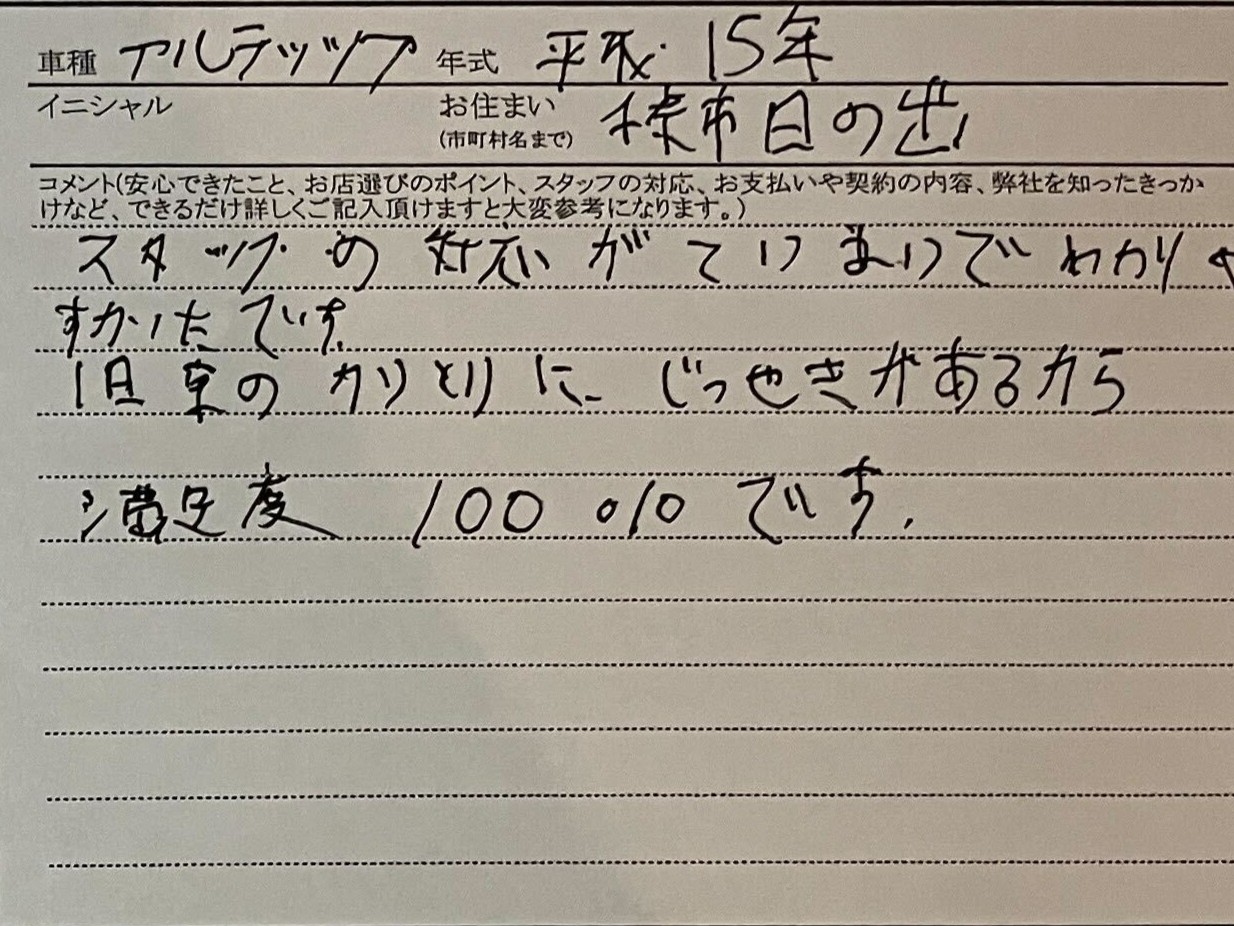 車種 アルテッツア 年式 平成 15年
イニシャル お住まい (市町村名まで) 市日の出
コメント(安心できたこと、お店選びのポイント、スタッフの対応、お支払いや契約の内容、弊社を知ったきっか
けなど、できるだけ詳しくご記入頂けますと大変参考になります。)
スタッフの対応がていねいでわかりや
すかったです。
旧車のカリとりに じっせきがあるから
満足度 100%です.